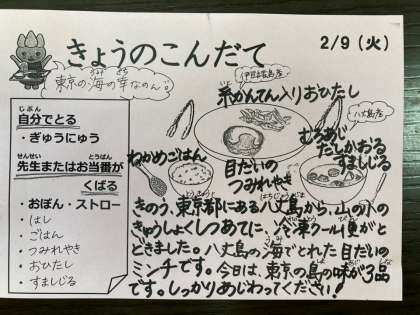 きょうのこんだて
2/9（火）
東京の海の幸なのん。
伊豆大島産
糸かんてん入りおひたし
八丈島産
むろあじ
だしかおる
すましじる
わかめごはん
目だいの
つみれやき
じぶん
自分でとる
・ぎゅうにゅう
せんせい とうばん
先生またはお当番が
くばる
・おぼん・ストロー
・はし
・ごはん
・つみれやき
・おひたし
・すましじる
きのう、東京都にある八丈島から、山の小の
きゅうしょくしつあてに、冷凍クール便がと
どきました。八丈島の海でとれた目だいの
ミンチです。今日は、東京の島の味が3品
です。しっかりあじわってください!